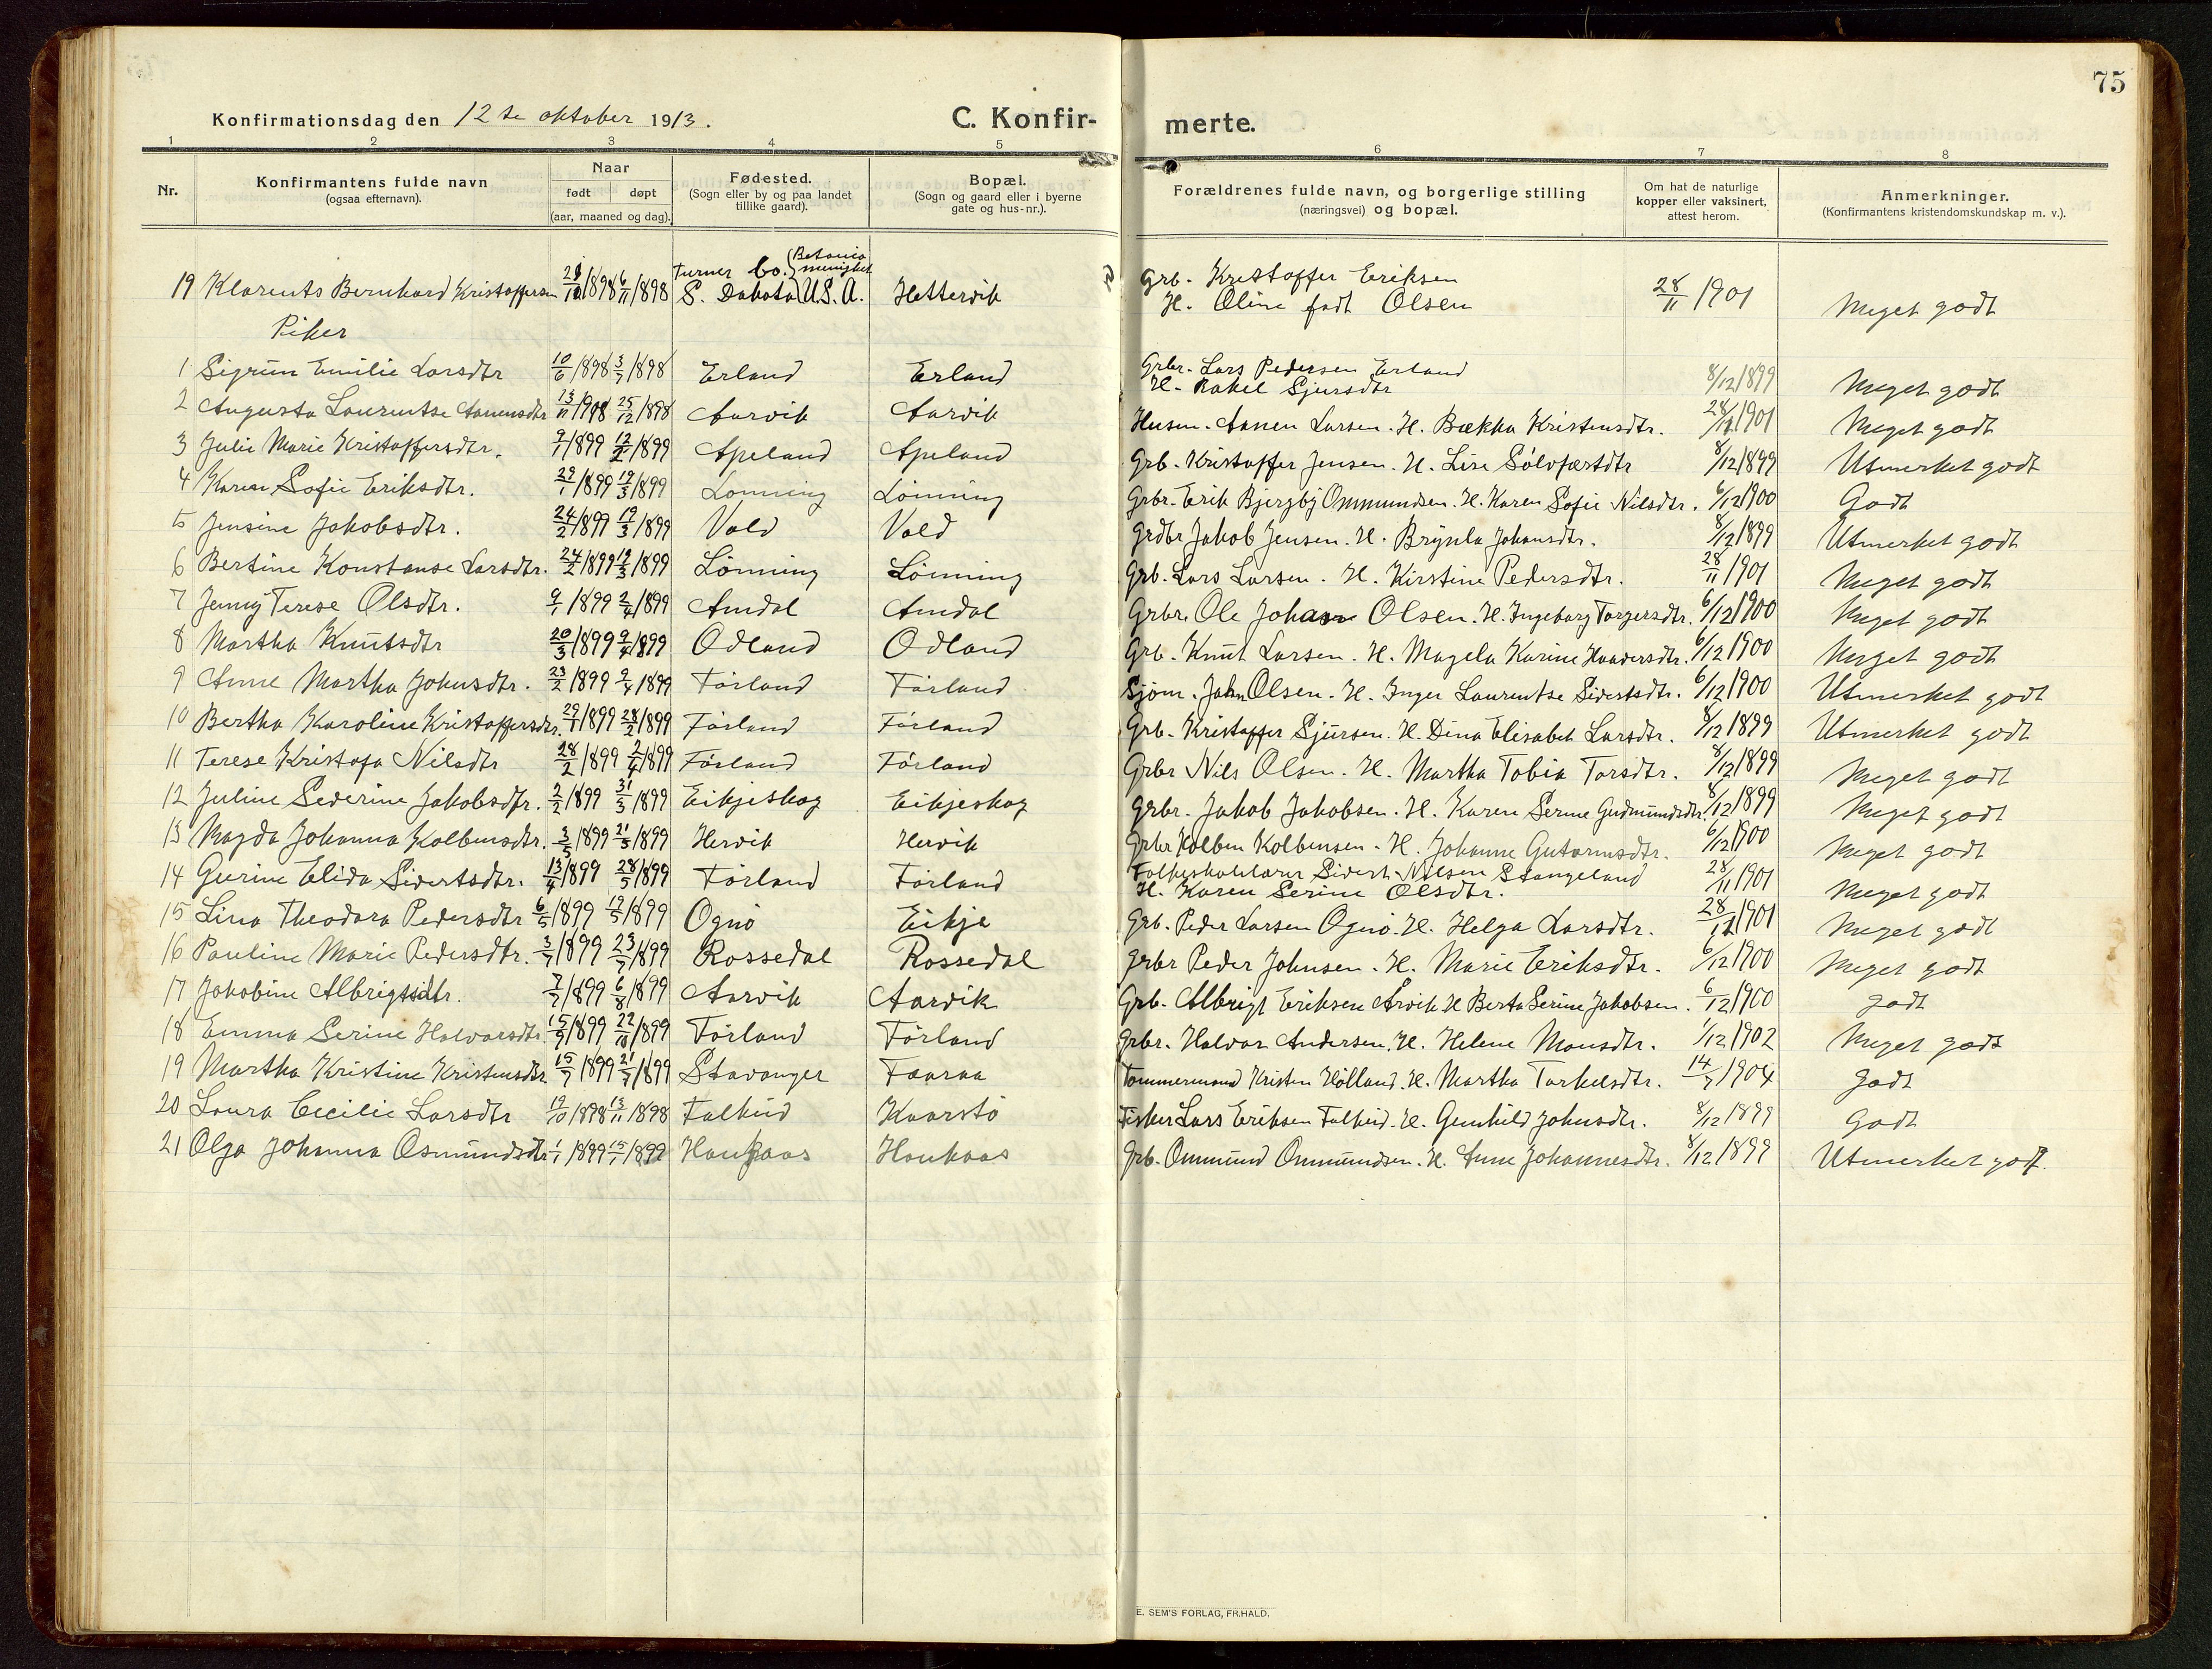 75
Konfirmationsdag den 12te oktober 1913.
C. Konfirmerte.
1 2 3 4 5 6 7 8
Nr.
Konfirmantens fulde navn
(ogsaa efternavn).
Naar
født døpt
(aar, maaned og dag).
Fødested.
(Sogn eller by og paa landet
tillike gaard).
Bopæl.
(Sogn og gaard eller i byerne
gate og hus-nr.).
Forældrenes fulde navn, og borgerlige stilling
(næringsvei) og bopæl.
Om hat de naturlige
kopper eller vaksinert,
attest herom.
Anmerkninger.
(Konfirmantens kristendomskundskap m. v.).
Turner Co. (Betania menighet
19 Klarents Bernhard Kristoffersen /1898 6/11/1898 S. Dakota) U.S.A. Hettervik Grb. Kristoffer Eriksen H. Oline født Olsen 28/11 1901 Meget godt
Piker
1 Sigrun Emilie Larsdtr 10/6/1898 3/7/1898 Erland Erland Grbr. Lars Pedersen Erland H. Rakel Sjursdtr 8/12/1899 Meget godt
2 Augusta Laurentse Aanensdtr 13/11/1908 25/12/1898 Aarvik Aarvik Husm. Aanen Larsen. H. Bækka Kristensdtr. 28/11/1901 Meget godt
3 Julie Marie Kristoffersdtr. 9/1/1899 12/2/1899 Apeland Apeland Grb. Kristoffer Jensen. H. Lise Sølvfæstdtr 8/12/1899 Utmerket godt
4 Karen Sofie Eriksdtr. 29/1/1899 19/3/1899 Lønning Lønning Grbr. Erik Bjergby Ommundsen. H. Karen Sofie Nilsdtr. 6/12/1900 Godt
5 Jensine Jakobsdtr. 24/2/1899 19/3/1899 Vold Vold Grdbr Jakob Jensen. H. Brynla Johansdtr. 8/12/1899 Utmerket godt
6 Bertine Konstanse Larsdtr. 24/2/1899 19/3/1899 Lønning Lønning Grb. Lars Larsen. H. Kirstine Pedersdtr. 28/11/1901 Meget godt
7 Jenny Terese Olsdtr. 9/1/1899 2/4/1899 Amdal Amdal Grbr. Ole Johan Olsen. H. Ingeborg Torgersdtr. 6/12/1900 Meget godt
8 Martha Knutsdtr 20/3/1899 9/4/1899 Odland Odland Grb. Knut Larsen. H. Magela Karine Haaversdtr. 6/12/1900 Meget godt
9 Anne Martha Johnsdtr. 23/2/1899 9/4/1899 Førland Førland Sjøm. John Olsen. H. Inger Laurentse Sivertsdtr. 6/12/1900 Utmerket godt
10 Bertha Karoline Kristoffersdtr. 29/1/1899 28/2/1899 Førland Førland Grb. Kristoffer Sjursen. H. Dina Elisabet Larsdtr. 8/12/1899 Utmerket godt
11 Terese Kristofa Nilsdtr 28/2/1899 2/4/1899 Førland Førland Grbr Nils Olsen. H. Martha Tobia Torsdtr. 8/12/1899 Meget godt
12 Juline Severine Jakobsdtr. 2/2/1899 31/3/1899 Eikjeskog Eikjeskog Grbr. Jakob Jakobsen. H. Karen Serine Gudmundsdtr. 8/12/1899 Meget godt
13 Magda Johanna Kolbensdtr. 3/5/1899 21/5/1899 Hervik Hervik Grbr Kolben Kolbensen. H. Johanne Gutormsdtr. 6/12/1900 Meget godt
14 Gurine Elida Sivertsdtr. 13/4/1899 28/5/1899 Førland Førland Folkeskolelærer Sivert Nilsen Stangeland H. Karen Serine Olsdtr. 28/11/1901 Meget godt
15 Lina Theodora Pedersdtr 6/5/1899 19/5/1899 Ognø Eikje Grb. Peder Larsen Ognø. H. Helga Larsdtr. 28/11/1901 Meget godt
16 Pauline Marie Pedersdtr. 3/7/1899 23/7/1899 Rossedal Rossedal Grbr Peder Johnsen. H. Marie Eriksdtr. 6/12/1900 Meget godt
17 Jakobine Albrigtsdtr. 7/7/1899 6/8/1899 Aarvik Aarvik Grb. Albrigt Eriksen Arvik H Berta Serine Jakobsen. 6/12/1900 godt
18 Emma Serine Halvorsdtr. 15/9/1899 22/10/1899 Førland Førland Grbr. Halvor Andersen. H. Helene Monsdtr. 1/12/1902 Meget godt
19 Martha Kristine Kristensdtr 15/7/1899 21/7/1899 Stavanger Faaraa Tømmermand Kristen Hølland. H. Martha Torkelsdtr. 14/7/1904 Godt
20 Laura Cecilie Larsdtr 19/10/1898 13/11/1898 Falkeid Kaarstø Fisker Lars Eriksen Falkeid. H. Gunhild Johnsdtr. 8/12/1899 Godt
21 Olga Johanna Osmundsdtr 1/1/1899 15/1/1899 Haukaas Haukaas Grb. Ommund Ommundsen. H. Anne Johannesdtr. 8/12/1899 Utmerket godt.
E. SEM'S FORLAG, FR.HALD.